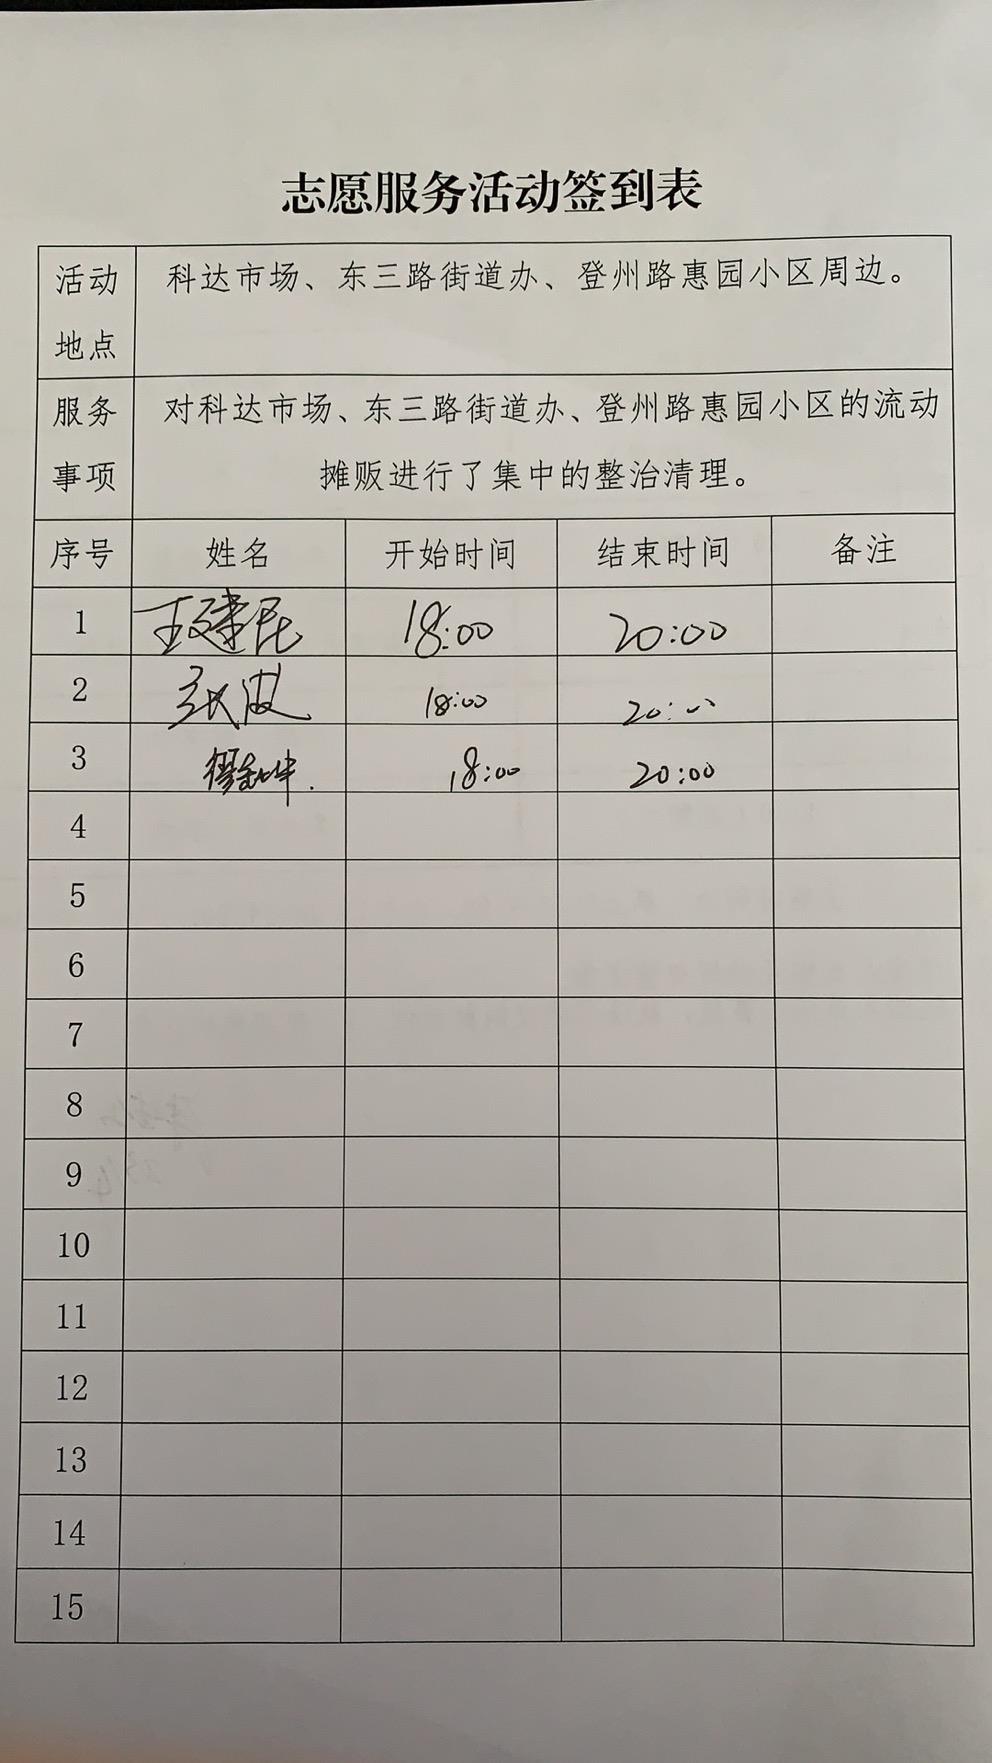 志愿服务活动签到表
活动 科达市场、东三路街道办、登州路惠园小区周边。
地点
服务 对科达市场、东三路街道办、登州路惠园小区的流动
事项 摊贩进行了集中的整治清理。
序号 姓名 开始时间 结束时间 备注
1 王建民 18:00 20:00
2 张波 18:00 20:00
3 18:00 20:00
4
5
6
7
8
9
10
11
12
13
14
15